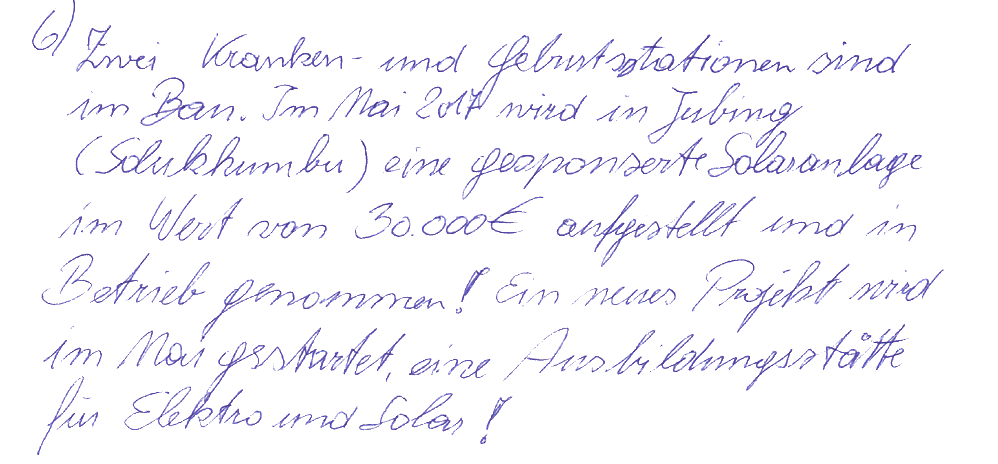 6) Zwei Kranken- und Geburtsstationen sind
im Bau. Im Mai 2017 wird in Jubing
(Solukhumbu) eine gesponserte Solaranlage
im Wert von 30.000€ aufgestellt und in
Betrieb genommen! Ein neues Projekt wird
im Mai gestartet, eine Ausbildungsstätte
für Elektro und Solar!